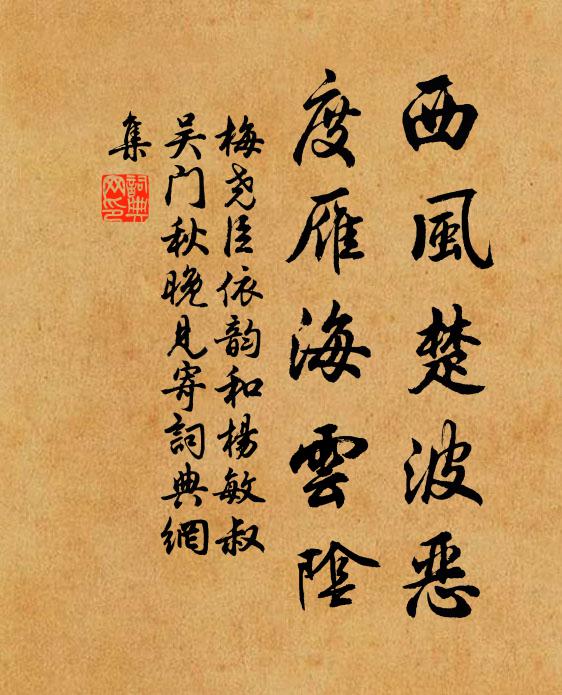 西風楚波惡
度雁海雲陰
梅尧臣依韵和楊敏叔
吴门秋晚見寄詞典網
集
詞典
网印